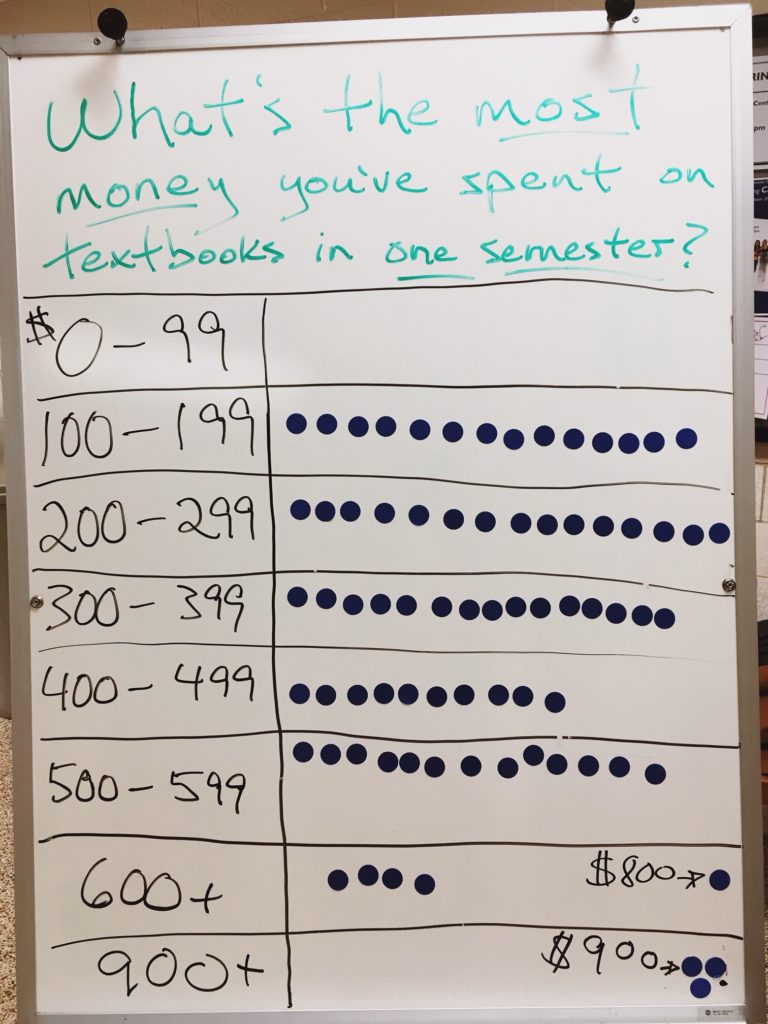 What's the most
money you've spent on
textbooks in one semester?
$0 - 99
100 - 199
200 - 299
300 - 399
400 - 499
500 - 599
600+
$800→
900+
$900→